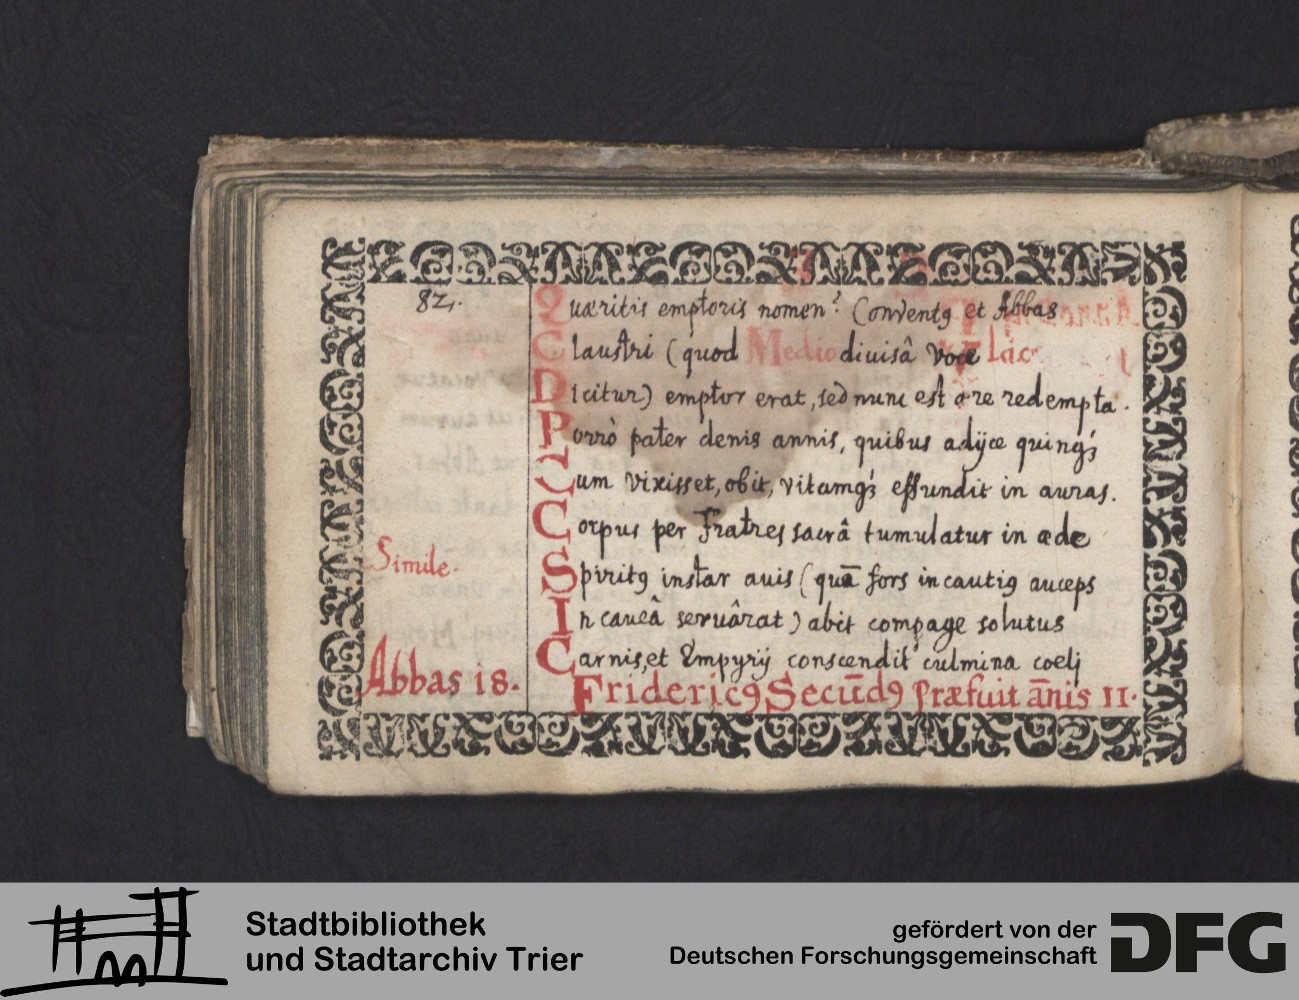 82.
Quæritis emptoris nomen? Conventꝯ et Abbas
Claustri (quod Medio diuisâ voce Lac
Dicitur) emptor erat, sed nunc est ære redempta.
Porrò pater denis annis, quibus adijce quinqꝫ
Cum vixisset, obit, vitamqꝫ effundit in auras.
Corpus per Fratres sacrâ tumulatur in æde
Simile.
Spiritꝯ instar auis (quā fors incautiꝯ auceps
In caueâ seruârat) abit compage solutus
Carnis, et Empyrij conscendit culmina coelj
Abbas 18.
Fridericꝯ Secūdꝯ Præfuit ānis 11.
Stadtbibliothek
und Stadtarchiv Trier
gefördert von der
Deutschen Forschungsgemeinschaft
DFG